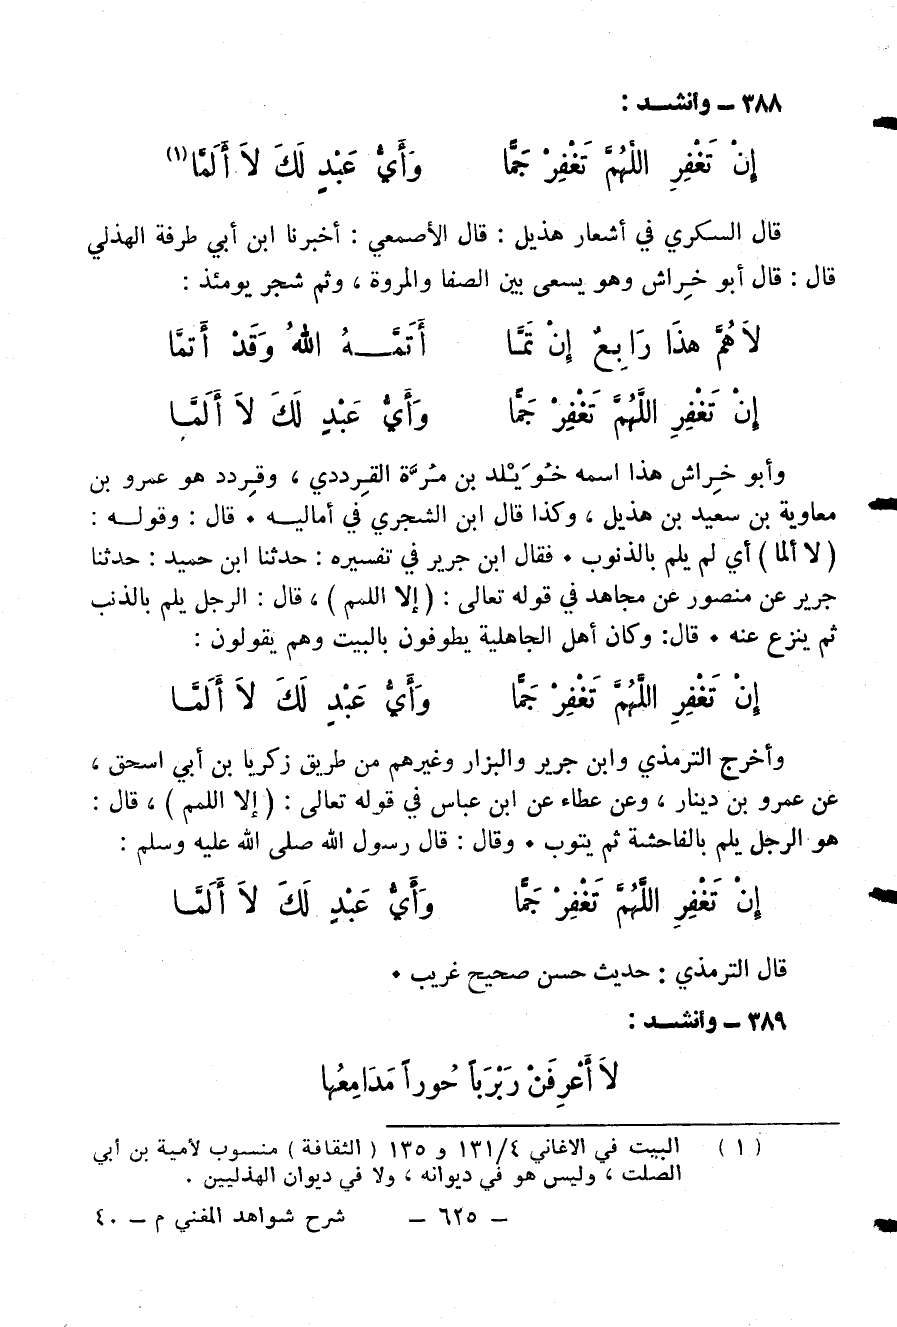 ٣٨٨ – وانشـد :
إِنْ تَغْفِرِ اللّهُمَّ تَغْفِرْ جَمَّا وَأَيُّ عَبْدٍ لَكَ لاَ أَلَمَّا (١)
قال السكري في أشعار هذيل : قال الأصمعي : أخبرنا ابن أبي طرفة الهذلي
قال : قال أبو خِراش وهو يسعى بين الصفا والمروة ، وثم شجر يومئذ :
لاَهُمَّ هذَا رَابِعٌ إِنْ تَمَّا أَتَمَّـهُ اللهُ وَقَدْ أَتَمَّا
إِنْ تَغْفِرِ اللَّهُمَّ تَغْفِرْ جَمَّا وَأَيُّ عَبْدٍ لَكَ لاَ أَلَمَّـا
وأبو خِراش هذا اسمه خُوَيْلد بن مُرَّة القِرددي ، وقِردد هو عمرو بن
معاوية بن سعيد بن هذيل ، وكذا قال ابن الشجري في أماليـه . قال : وقولـه :
( لا ألما ) أي لم يلم بالذنوب . فقال ابن جرير في تفسيره : حدثنا ابن حميد : حدثنا
جرير عن منصور عن مجاهد في قوله تعالى : ( إلا اللمم ) ، قال : الرجل يلم بالذنب
ثم ينزع عنه . قال: وكان أهل الجاهلية يطوفون بالبيت وهم يقولون :
إِنْ تَغْفِرِ اللَّهُمَّ تَغْفِرْ جَمَّا وَأَيُّ عَبْدٍ لَكَ لاَ أَلَمَّـا
وأخرج الترمذي وابن جرير والبزار وغيرهم من طريق زكريا بن أبي اسحق ،
عن عمرو بن دينار ، وعن عطاء عن ابن عباس في قوله تعالى : ( إلا اللمم ) ، قال :
هو الرجل يلم بالفاحشة ثم يتوب . وقال : قال رسول الله صلى الله عليه وسلم :
إِنْ تَغْفِرِ اللَّهُمَّ تَغْفِرْ جَمَّا وَأَيُّ عَبْدٍ لَكَ لاَ أَلَمَّـا
قال الترمذي : حديث حسن صحيح غريب .
٣٨٩ – وانشـد :
لاَ أَعْرِفَنْ رَبْرَباً حُوراً مَدَامِعُها
( ١ ) البيت في الاغاني ١٣١/٤ و ١٣٥ ( الثقافة ) منسوب لأمية بن أبي
الصلت ، وليس هو في ديوانه ، ولا في ديوان الهذليين .
– ٦٢٥ – شرح شواهد المغني م – ٤٠